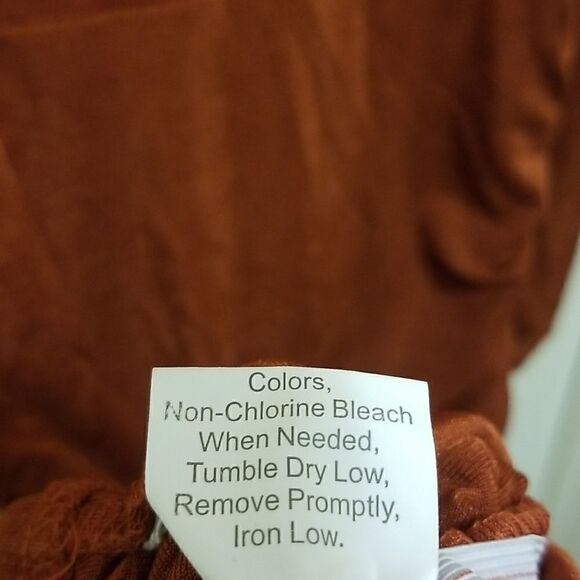 Colors,
Non-Chlorine Bleach
When Needed,
Tumble Dry Low,
Remove Promptly,
Iron Low.